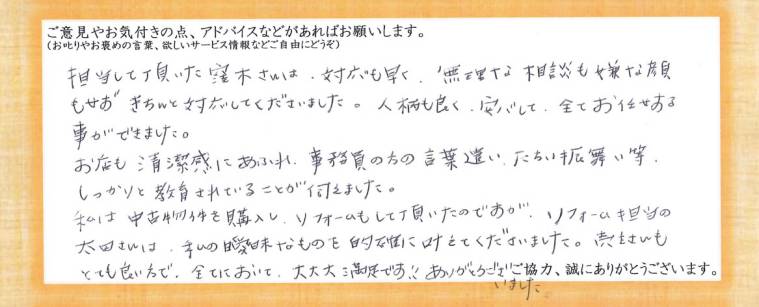 ご意見やお気付きの点、アドバイスなどがあればお願いします。
(お叱りやお褒めの言葉、欲しいサービス情報などご自由にどうぞ)
担当して頂いた窪木さんは、対応も早く、無理な相談も嫌な顔
もせず きちんと対応してくださいました。人柄も良く、安心して、全てお任せする
事ができました。
お店も清潔感にあふれ、事務員の方の言葉遣い、たちい振舞い等、
しっかりと教育されていることが伺えました。
私は中古物件を購入し、リフォームもして頂いたのですが、リフォーム担当の
太田さんは、私の曖昧なものを的確に叶えてくださいました。売主さんも
とても良い方で、全てにおいて、大大大満足です!! ありがとうござ
いました。
ご協力、誠にありがとうございます。